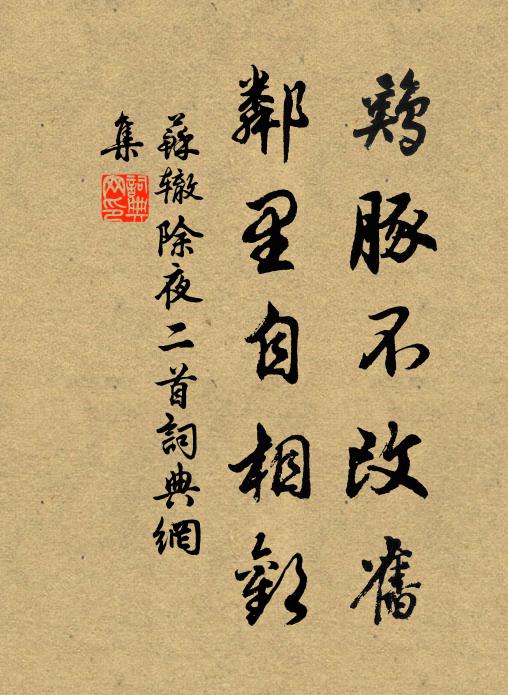 鷄豚不改舊
鄰里自相歡
蘇辙除夜二首詞典網
集
詞典
网印